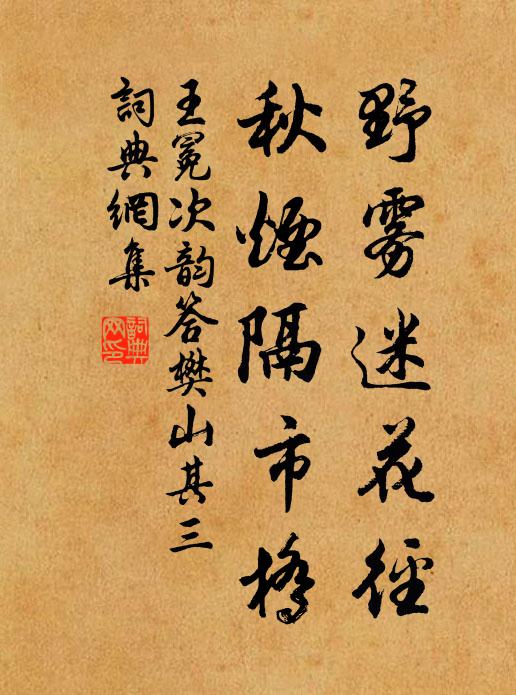 野雾迷花径
秋烟隔市橋
王冕次韵答樊山其三
詞典網集
詞典網印